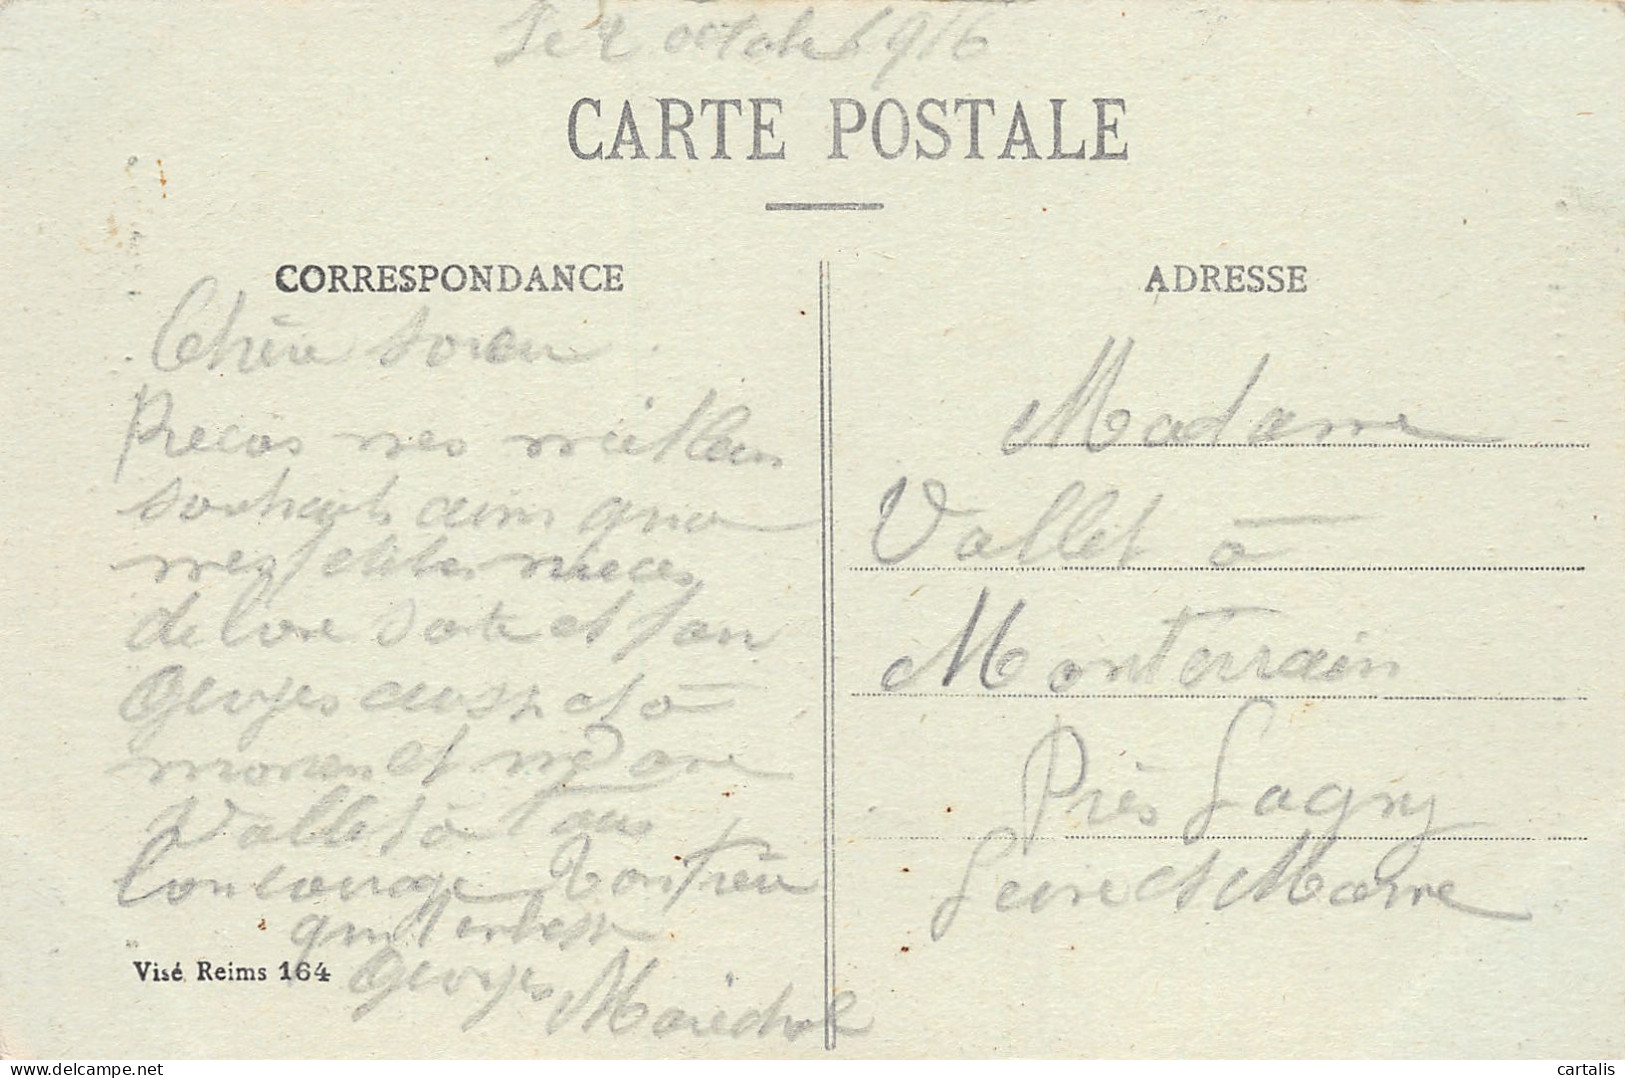 Le 2 octobre 1916
CARTE POSTALE
CORRESPONDANCE
Chère soeur
Recois mes meilleurs
souhaits ainsi que
mes petites nieces
de bone Sante et
Georges aussi et à
et me
Vallet à
bon courage Ton frère
qui t'enbesse
Georges Maréchal
Visé Reims 164
ADRESSE
Madame
Vallet à
Monterrain
Près Lagny
Seine et Marne
cartalis
delcampe.net